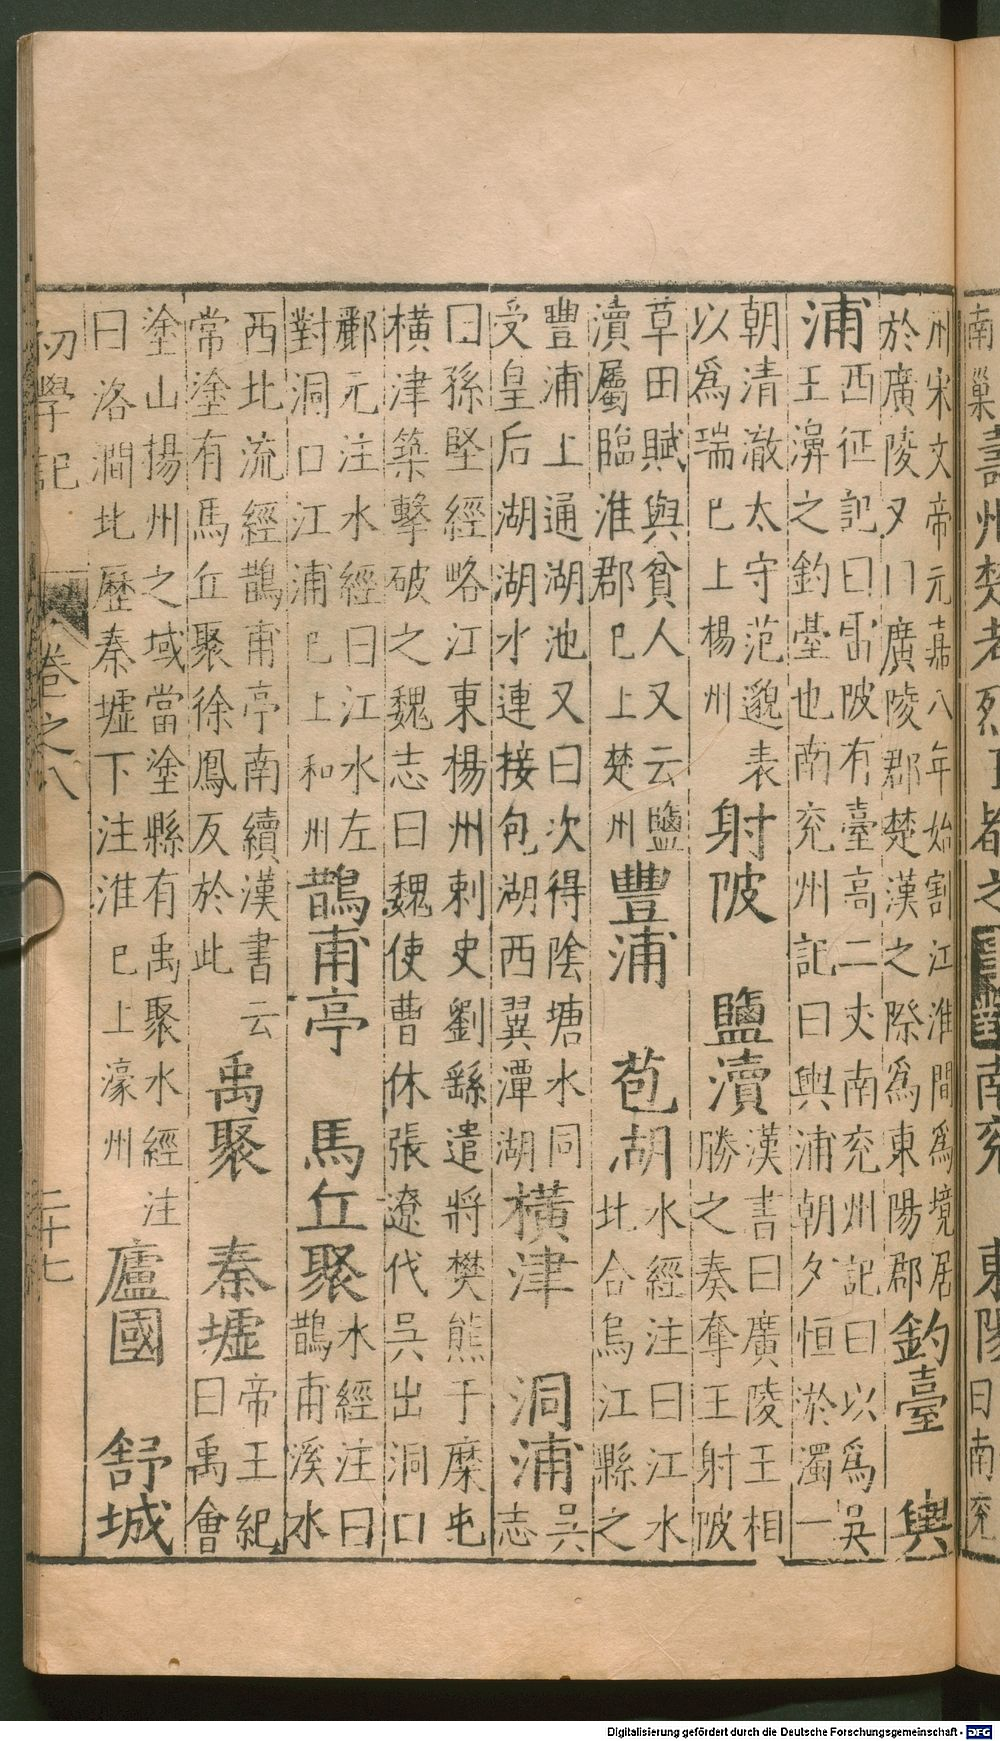 南
巢
壽州楚考烈王都之
事對
南兗　東陽
曰南兗
州宋文帝元嘉八年始割江淮間爲境居
於廣陵又曰廣陵郡楚漢之際爲東陽郡
釣臺　輿
浦
西征記曰雷陂有臺高二丈南兗州記曰以爲吳
王濞之釣臺也南兗州記曰輿浦朝夕恒於濁一
朝清澈太守范邈表
以爲瑞已上楊州
射陂　鹽瀆
漢書曰廣陵王相
勝之奏奪王射陂
草田賦與貧人又云鹽
瀆屬臨淮郡已上楚州
豐浦　苞湖
水經注曰江水
北合烏江縣之
豐浦上通湖池又曰次得陰塘水同
受皇后湖湖水連接包湖西翼潭湖
橫津　洞浦
吳
志
曰孫堅經略江東楊州刺史劉繇遣將樊熊于糜屯
橫津築擊破之魏志曰魏使曹休張遼伐吳出洞口
酈元注水經曰江水左
對洞口江浦已上和州
鵲甫亭　馬丘聚
水經注曰
鵲甫溪水
西北流經鵲甫亭南續漢書云
常塗有馬丘聚徐鳳反於此
禹聚　秦墟
帝王紀
曰禹會
塗山揚州之域當塗縣有禹聚水經注
曰洛澗北歷秦墟下注淮已上濠州
廬國　舒城
初學記　卷之八　二十七
Digitalisierung gefördert durch die Deutsche Forschungsgemeinschaft - DFG